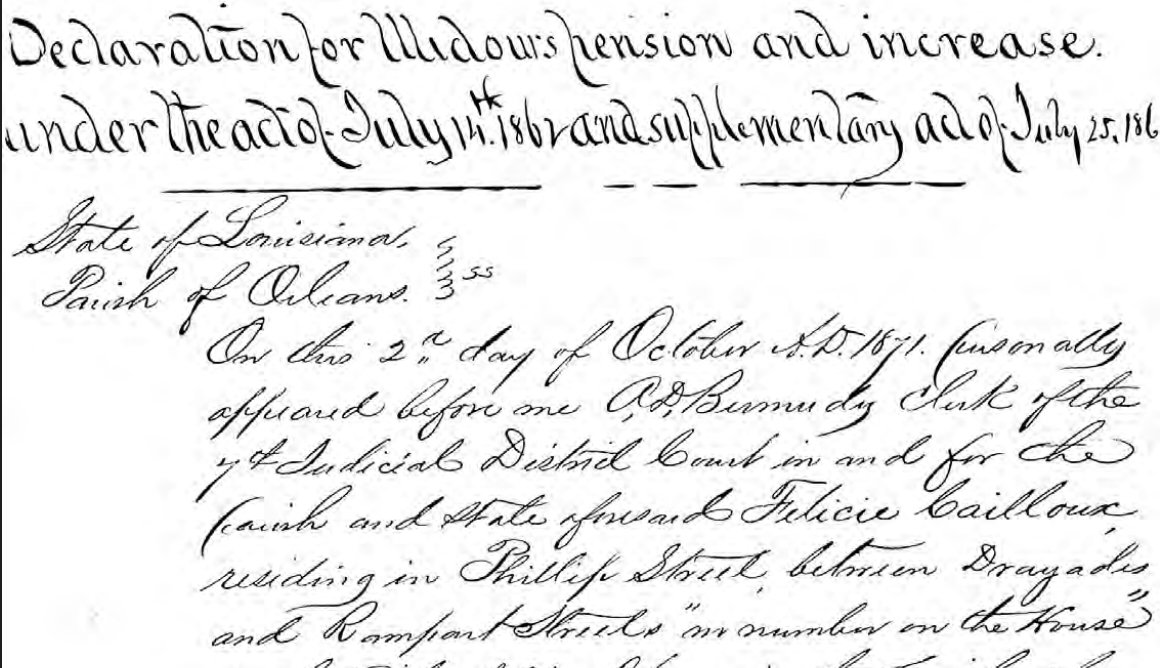 Declaration for Widows pension and increase.
under the act of July 14th. 1862 and supplementary act of July 25, 186
State of Louisiana.
Parish of Orleans. ss
On this 2nd day of October A.D. 1871. personally
appeared before me A.D. Bermudy Clerk of the
7th Judicial District Court in and for the
Parish and State aforesaid Felicie Cailloux,
residing in Phillip Street, between Drayades
and Rampart Streets "no number on the House"